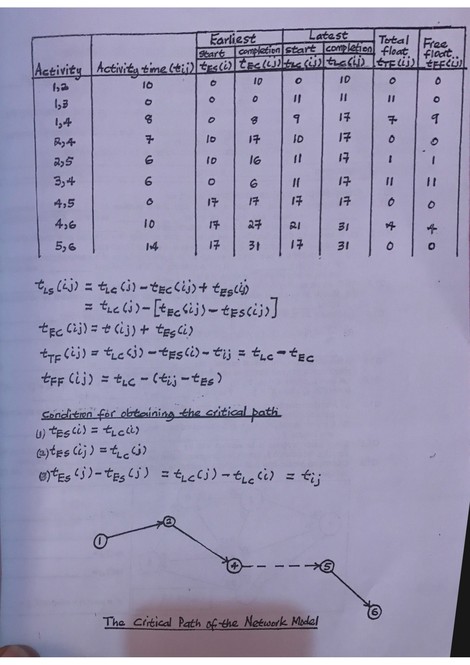 Earliest Latest Total float Free float
start completion start completion
Activity Activity time (tij) tES(i) tEC(ij) tLS(ij) tLC(ij) tTF(ij) tFF(ij)
1,2 10 0 10 0 10 0 0
1,3 0 0 0 11 11 11 0
1,4 8 0 8 9 17 7 9
2,4 7 10 17 10 17 0 0
2,5 6 10 16 11 17 1 1
3,4 6 0 6 11 17 11 11
4,5 0 17 17 17 17 0 0
4,6 10 17 27 21 31 4 4
5,6 14 17 31 17 31 0 0
tLS(ij) = tLC(j) - tEC(ij) + tES(ij)
= tLC(j) - [tEC(ij) - tES(ij)]
tEC(ij) = t(ij) + tES(i)
tTF(ij) = tLC(j) - tES(i) - tij = tLC - tEC
tFF(ij) = tLC - (tij - tES)
Condition for obtaining the critical path
(1) tES(i) = tLC(i)
(2) tES(ij) = tLC(j)
(3) tES(j) - tES(j) = tLC(j) - tLC(i) = tij
1 2
4 5
6
The Critical Path of the Network Model